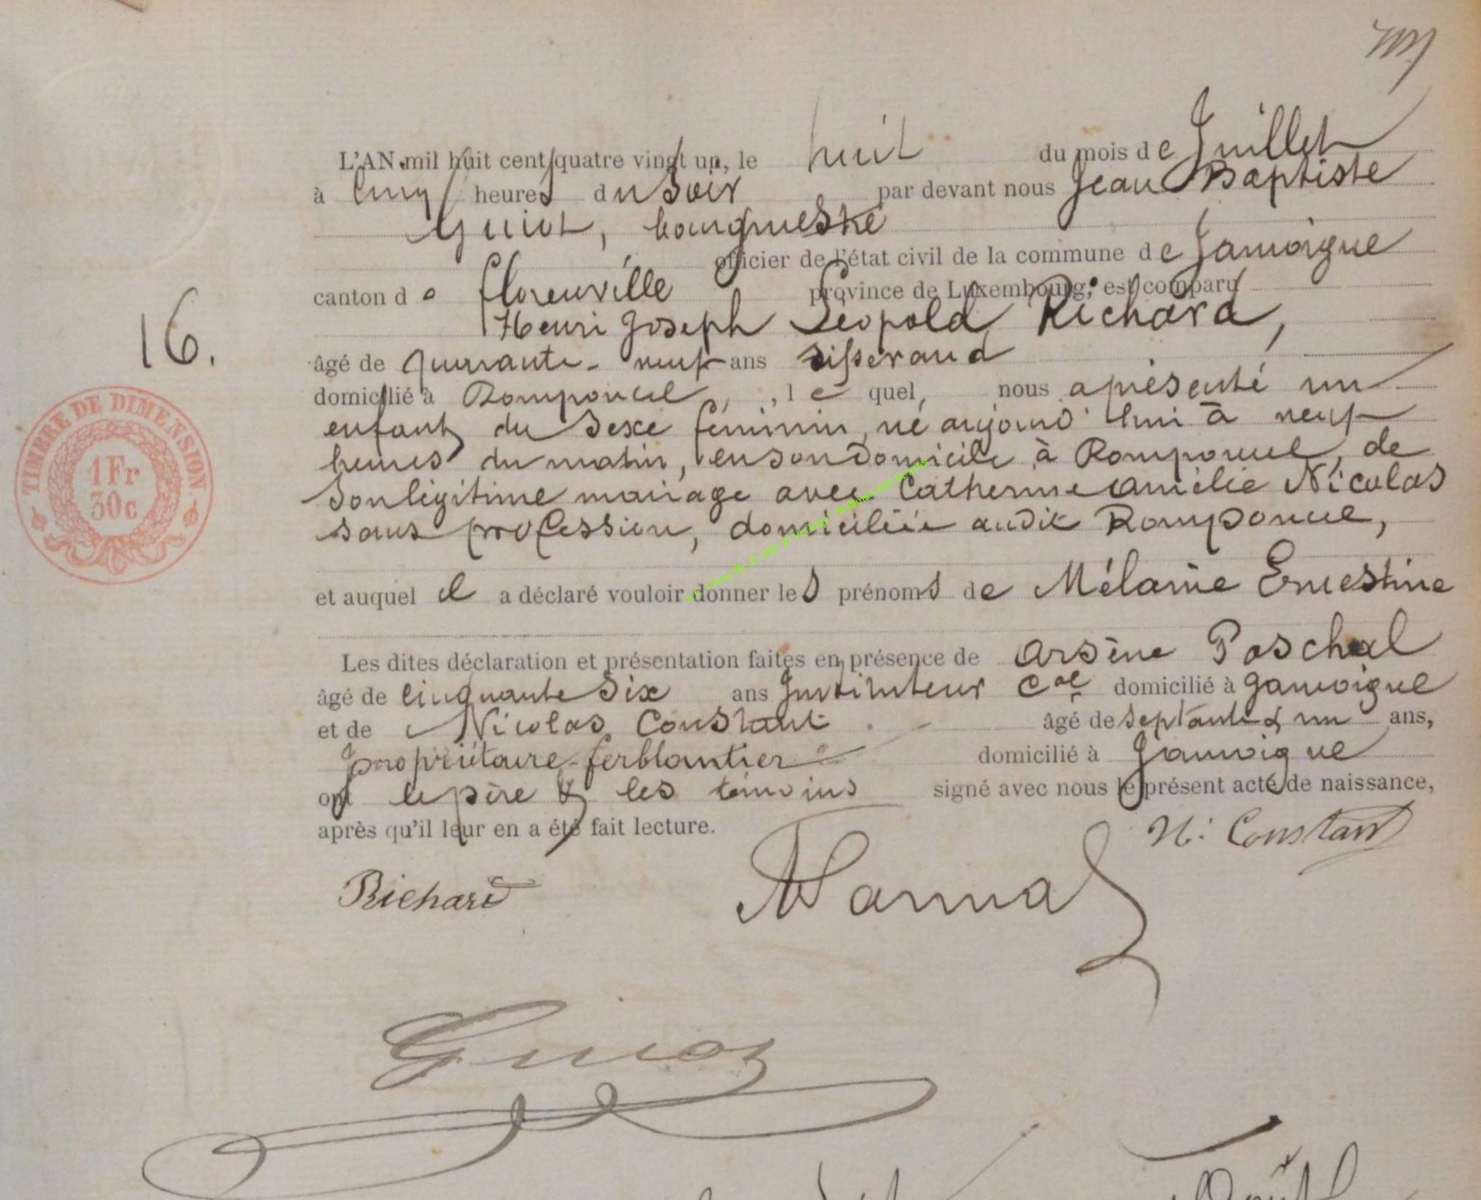 L'AN mil huit cent quatre vingt un, le huit du mois de Juillet
à Cinq heures du Soir par devant nous Jean Baptiste
Guiot, bourgmestre
officier de l'état civil de la commune de Jamoigne
canton de Florenville province de Luxembourg, est comparu
Henri Joseph Léopold Richard,
16.
âgé de quarante-neuf ans tisserand
domicilié à Romponcel, lequel, nous a présenté un
enfant du Sexe féminin, né aujourd'hui à neuf
heures du matin, en son domicile à Romponcel, de
son légitime mariage avec Catherine Amélie Nicolas
sans profession, domiciliée audit Romponcel,
et auquel il a déclaré vouloir donner les prénoms de Mélanie Ernestine
Les dites déclaration et présentation faites en présence de Arsène Paschal
âgé de cinquante six ans Instituteur Cal domicilié à Jamoigne
et de Nicolas Constant âgé de septante & un ans,
propriétaire-ferblantier domicilié à Jamoigne
ont le père & les témoins signé avec nous le présent acte de naissance,
après qu'il leur en a été fait lecture.
N. Constant
Richard
Guiot
TIMBRE DE DIMENSION
1Fr
30c